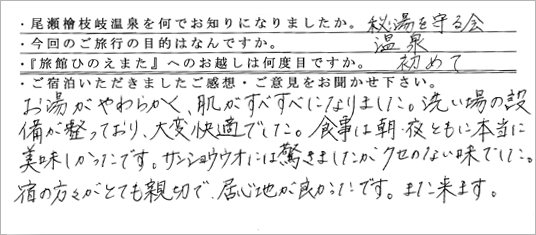 ・尾瀬檜枝岐温泉を何でお知りになりましたか。 秘湯を守る会
・今回のご旅行の目的はなんですか。 温泉
・『旅館ひのえまた』へのお越しは何度目ですか。 初めて
・ご宿泊いただきましたご感想・ご意見をお聞かせ下さい。
お湯がやわらかく、肌がすべすべになりました。洗い場の設
備が整っており、大変快適でした。食事は朝・夜ともに本当に
美味しかったです。サンショウウオには驚きましたがクセのない味でした。
宿の方々がとても親切で、居心地が良かったです。また来ます。